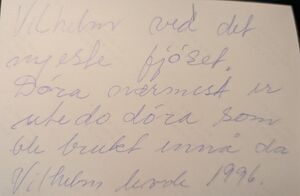 Vilhelm ved det
nyeste fjöset.
Döra nærmest er
utedo döra som
ble brukt ennå da
Vilhelm levde 1996.